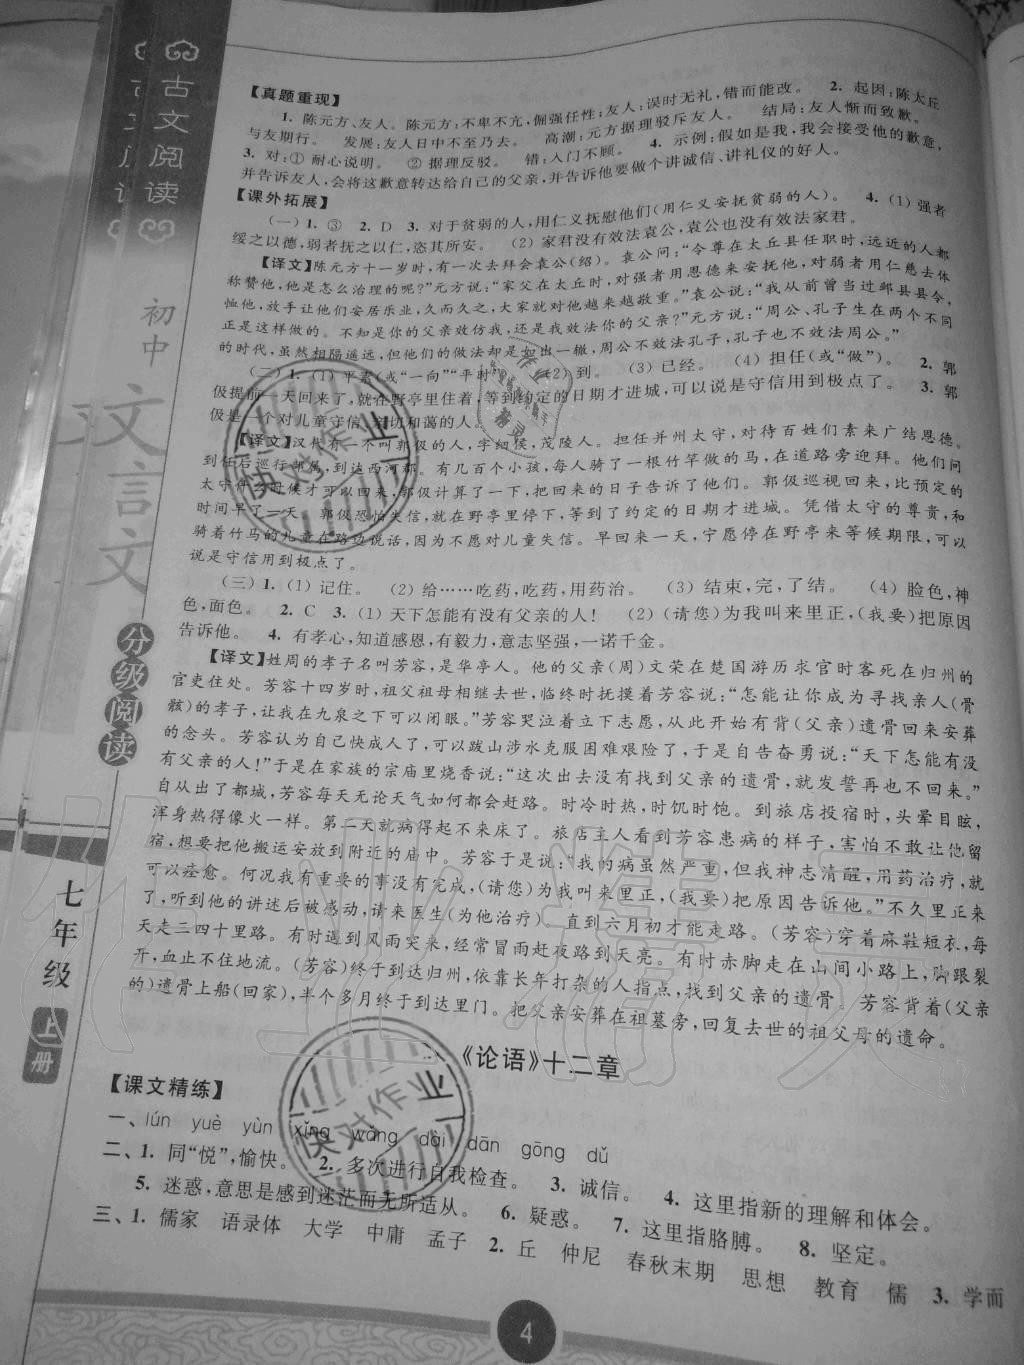 古文阅读
初中
文言文
分级阅读
七年级
上册
【真题重现】
1. 陈元方、友人。陈元方:不卑不亢,倔强任性;友人:误时无礼,错而能改。 2. 起因:陈太丘
与友期行。 发展:友人日中不至乃去。 高潮:元方据理驳斥友人。 结局:友人惭而致歉。
3. 对:① 耐心说明。 ② 据理反驳。 错:入门不顾。 4. 示例:假如是我,我会接受他的歉意,
并告诉友人,会将这歉意转达给自己的父亲,并告诉他要做个讲诚信、讲礼仪的好人。
【课外拓展】
(一) 1. ③ 2. D 3. 对于贫弱的人,用仁义抚慰他们(用仁义安抚贫弱的人)。 4. (1) 强者
绥之以德,弱者抚之以仁,恣其所安。 (2) 家君没有效法袁公,袁公也没有效法家君。
【译文】陈元方十一岁时,有一次去拜会袁公(绍)。袁公问:“令尊在太丘县任职时,远近的人都
称赞他,他是怎么治理的呢?”元方说:“家父在太丘时,对强者用恩德来安抚他,对弱者用仁慈去体
恤他,放手让他们安居乐业,久而久之,大家就对他越来越敬重。”袁公说:“我从前曾当过邺县县令,
正是这样做的。不知是你的父亲效仿我,还是我效法你的父亲?”元方说:“周公、孔子生在两个不同
的时代,虽然相隔遥远,但他们的做法却是如出一辙,周公不效法孔子,孔子也不效法周公。”
(二) 1. (1) 平素(或“一向”“平时”)。 (2) 到。 (3) 已经。 (4) 担任(或“做”)。 2. 郭
伋提前一天回来了,就在野亭里住着,等到约定的日期才进城,可以说是守信用到极点了。 3. 郭
伋是一个对儿童守信、亲切和蔼的人。
【译文】汉代有一不叫郭伋的人,字细侯,茂陵人。担任并州太守,对待百姓们素来广结恩德。
到任后巡行部属,到达西河郡。有几百个小孩,每人骑了一根竹竿做的马,在道路旁迎拜。他们问
太守什么时候才可以回来,郭伋计算了一下,把回来的日子告诉了他们。郭伋巡视回来,比预定的
时间早了一天。郭伋恐怕失信,就在野亭里停下,等到了约定的日期才进城。凭借太守的尊贵,和
骑着竹马的儿童在路边说话,因为不愿对儿童失信。早回来一天,宁愿停在野亭来等候他们,可以
说是守信用到极点了。
(三) 1. (1) 记住。 (2) 给……吃药,吃药,用药治。 (3) 结束,完,了结。 (4) 脸色,神
色,面色。 2. C 3. (1) 天下怎能有没有父亲的人! (2) (请您)为我叫来里正,(我要)把原因
告诉他。 4. 有孝心,知道感恩,有毅力,意志坚强,一诺千金。
【译文】姓周的孝子名叫芳容,是华亭人。他的父亲(周)文荣在楚国游历求官时客死在归州的
官吏住处。芳容十四岁时,祖父祖母相继去世,临终时抚摸着芳容说:“怎能让你成为寻找亲人(骨
骸)的孝子,让我在九泉之下可以闭眼。”芳容哭泣着立下志愿,从此开始有背(父亲)遗骨回来安葬
的念头。芳容认为自己快成人了,可以跋山涉水克服困难艰险了,于是自告奋勇说:“天下怎能有没
有父亲的人!”于是在家族的宗庙里烧香说:“这次出去没有找到父亲的遗骨,就发誓再也不回来。”
自从出了都城,芳容每天无论天气如何都会赶路。时冷时热,时饥时饱。到旅店投宿时,头晕目眩,
浑身热得像火一样。第二天就病得起不来床了。旅店主人看到芳容患病的样子,害怕不敢让他留
宿,想要把他搬运安放到附近的庙中。芳容于是说:“我的病虽然严重,但我神志清醒,用药治疗,就
可以痊愈。何况我有重要的事没有完成,(请您)为我叫来里正,(我要)把原因告诉他。”不久里正来
了,听到他的讲述后被感动,请来医生(为他治疗) 直到六月初才能走路。(芳容)穿着麻鞋短衣,每
天走三四十里路。有时遇到风雨突来,经常冒雨赶夜路到天亮。有时赤脚走在山间小路上,脚跟裂
开,血止不住地流。(芳容)终于到达归州,依靠长年打杂的人指点,找到父亲的遗骨。芳容背着(父亲
的)遗骨上船(回家),半个多月终于到达里门。把父亲安葬在祖墓旁,回复去世的祖父母的遗命。
《论语》十二章
【课文精练】
一、lún yuè yùn xǐng wǎng dài dān gōng dǔ
二、1. 同“悦”,愉快。 2. 多次进行自我检查。 3. 诚信。 4. 这里指新的理解和体会。
5. 迷惑,意思是感到迷茫而无所适从。 6. 疑惑。 7. 这里指胳膊。 8. 坚定。
三、1. 儒家 语录体 大学 中庸 孟子 2. 丘 仲尼 春秋末期 思想 教育 儒 3. 学而
4
快对作业
快对作业
作业精灵